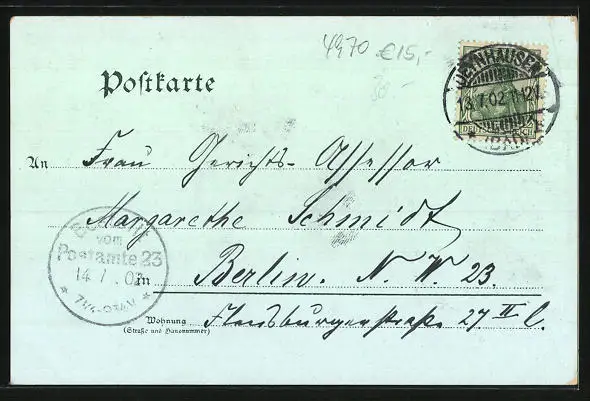 4970 €15,-
Postkarte
OEYNHAUSEN
13.7.02
DEUTSCHES REICH
An Frau Gerichts-Assessor
Margarethe Schmidt
vom
Postamte 23
14/7.02
in Berlin. N. W. 23.
Wohnung Flensburgerstraße 27 II l.
(Straße und Hausnummer)